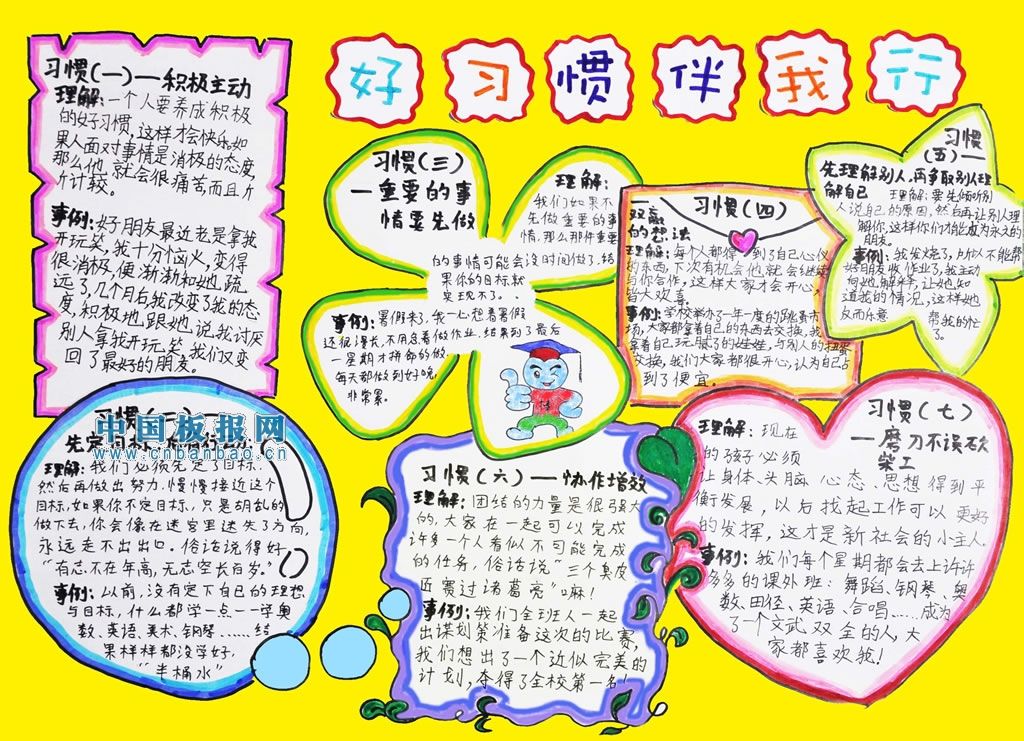 好习惯伴我行
习惯(一)—积极主动
理解:一个人要养成积极
的好习惯,这样才会快乐,如
果人面对事情是消极的态度,
那么他,就会很痛苦而且斤
斤计较。
事例:好朋友最近老是拿我
开玩笑,我十分恼火,变得
很消极,便渐渐和她疏
远了,几个月后我改变了我的态
度,积极地跟她说,我讨厌
别人拿我开玩笑,我们又变
回了最好的朋友。
习惯(二)—
先定目标
中国板报网
www.cnbanbao.cn
理解:我们必须先定了目标,
然后再做出努力,慢慢接近这个
目标,如果你不定目标,只是胡乱的
做下去,你会像在迷宫里迷失了方向,
永远走不出出口。俗话说得好
“有志不在年高,无志空长百岁。”
事例:以前,没有定下自己的理想
与目标,什么都学一点——学奥
数、英语、美术、钢琴……结
果样样都没学好,
“半桶水”
习惯(三)
—重要的事
情要先做
理解:
我们如果不
先做重要的事
情,那么那件重要
的事情可能会没时间做了,结
果你的目标就
实现不了。
事例:暑假来了,我一心想着暑假
还很漫长,不用急着做作业,结果到了最后
一星期才拼命的做,
每天都做到好晚,
非常累。
习惯(四)
—双赢
的想法
理解:每个人都得到了自己心仪
的东西,下次有机会他就会继续
与你合作,这样大家才会开心,
皆大欢喜。
事例:学校举办了一年一度的跳蚤市
场,大家都拿着自己的东西去交换,我
拿着自己玩腻了的娃娃,与别人的扭蛋
交换,我们大家都很开心,认为自己占
到了便宜。
习惯
(五)—
先理解别人,再争取别人理
解自己
理解:要先倾听别
人说自己的原因,然后再让别人理
解你,这样你们才能成为永久的
朋友。
事例:我发烧了,所以不能帮
好朋友收作业了,我主动
向她解释,让她知
道我的情况,这样她
反而乐意
帮我的忙
了。
习惯(六)—协作增效
理解:团结的力量是很强大
的,大家在一起可以完成
许多一个人看似不可能完成
的任务,俗话说“三个臭皮
匠赛过诸葛亮”嘛!
事例:我们全班人一起
出谋划策准备这次的比赛,
我们想出了一个近似完美的
计划,夺得了全校第一名!
习惯(七)
—磨刀不误砍
柴工
理解:现在
的孩子必须
让身体、头脑、心态、思想得到平
衡发展,以后找起工作可以更好
的发挥,这才是新社会的小主人。
事例:我们每个星期都会去上许许
多多的课外班:舞蹈、钢琴、奥
数、田径、英语、合唱……成为
了一个文武双全的人,大
家都喜欢我!